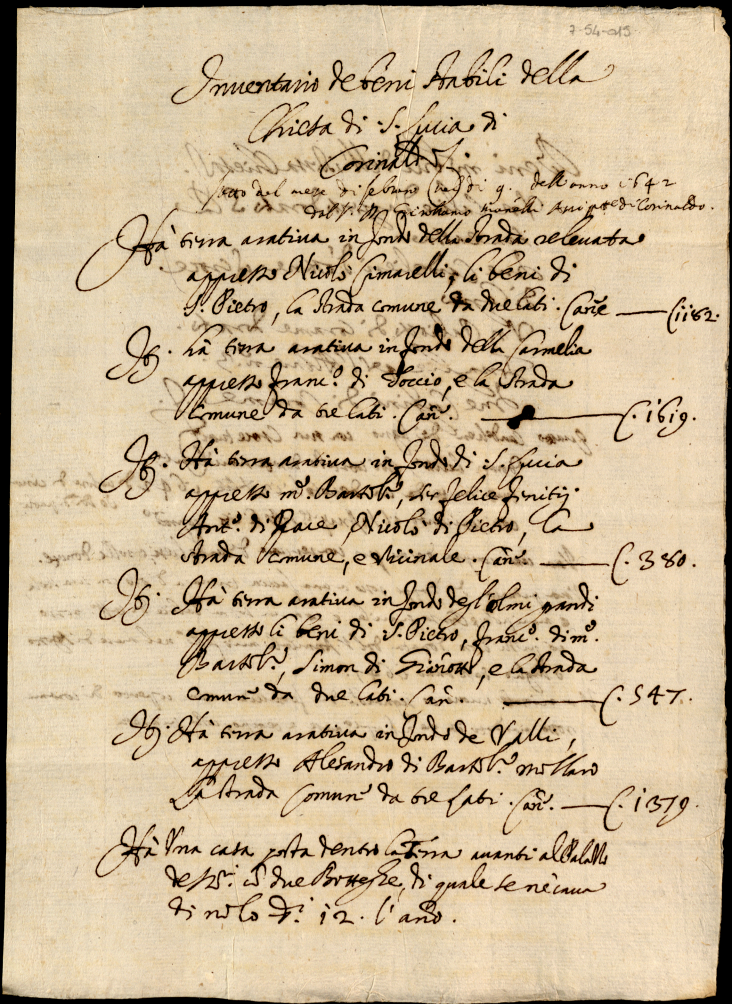 7-54-015
Inventario de beni stabili della
Chiesa di S. Lucia di
Corinaldo
fatto del mese di febraro di 9. dell'anno 1642
dal Corinaldo.
Hà terra arativa in fondo della strada relevata
appresso Nicolò Cimarelli, li beni di
S. Pietro, la strada comune da due lati. Canne — C. 1182.
It. hà terra arativa in fondo della Carmelia
appresso Franc.o di Soccio, e la strada
Comune da tre lati. Can. — C. 1619.
It. Hà terra arativa in fondo di S. Lucia
appresso m.o Bartol.o, Ser Felice
Ant.o di Pace, Nicolò di Pietro, la
strada comune, e vicinale. Can. — C. 380.
It. Hà terra arativa in fondo degl'olmi grandi
appresso li beni di S. Pietro, Franc.o di m.o
Bartol.o, Simon di e la strada
comun.e da due lati. Can. — C. 547.
It. Hà terra arativa in fondo de Valli,
appresso Alesandro di Bartol.o
La strada Comun.e da tre lati. Can. — C. 1379.
Hà Una casa posta dentro la Terra avanti al Palazzo
de due Botteghe, di quale se ne cava
di nolo 12. l'año.